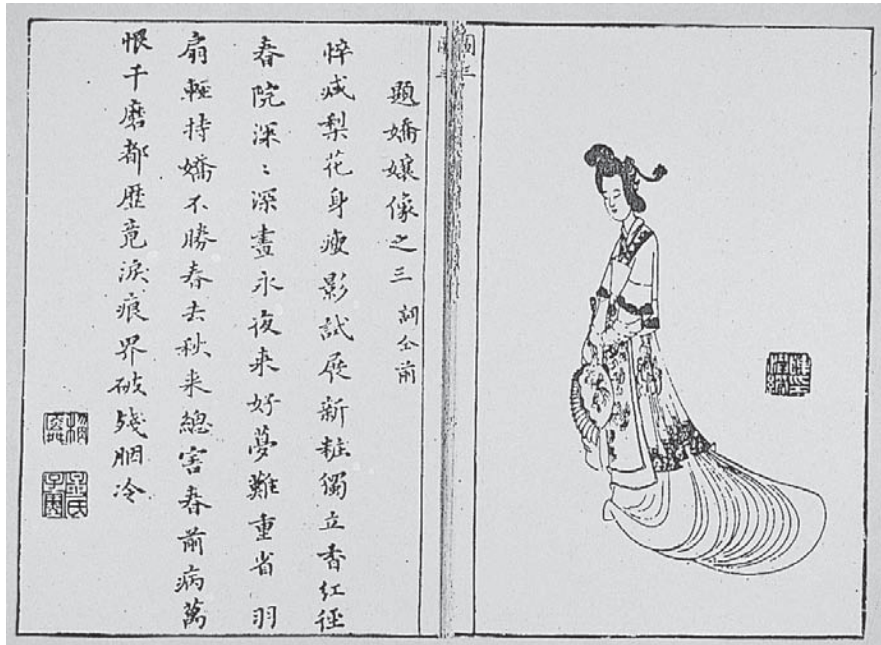 題嬌孃像之三 仝前
悴减梨花身瘦影試展新粧獨立香紅徑
春院深〻深晝永夜来好夢難重省羽
扇輕持嬌不勝春去秋来總害春前病萬
恨千磨都歷竟淚痕界破殘胭冷